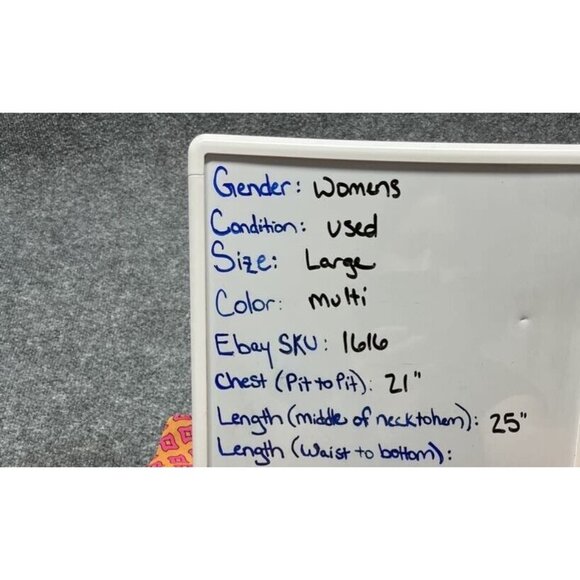 Gender: Womens
Condition: used
Size: Large
Color: multi
Ebay SKU: 1616
Chest (Pit to Pit): 21"
Length (middle of neck to hem): 25"
Length (Waist to bottom):